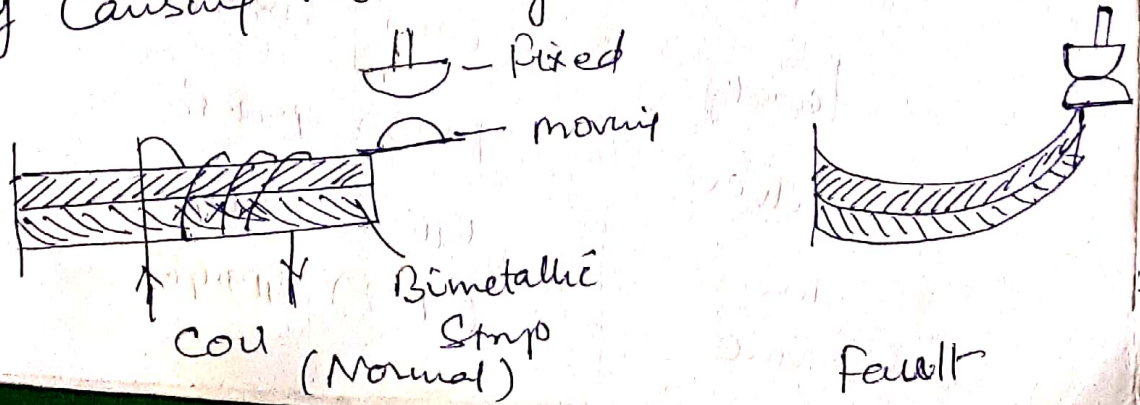 Causing
- Fixed
- moving
Bimetallic
Strip
Coil
(Normal)
Fault